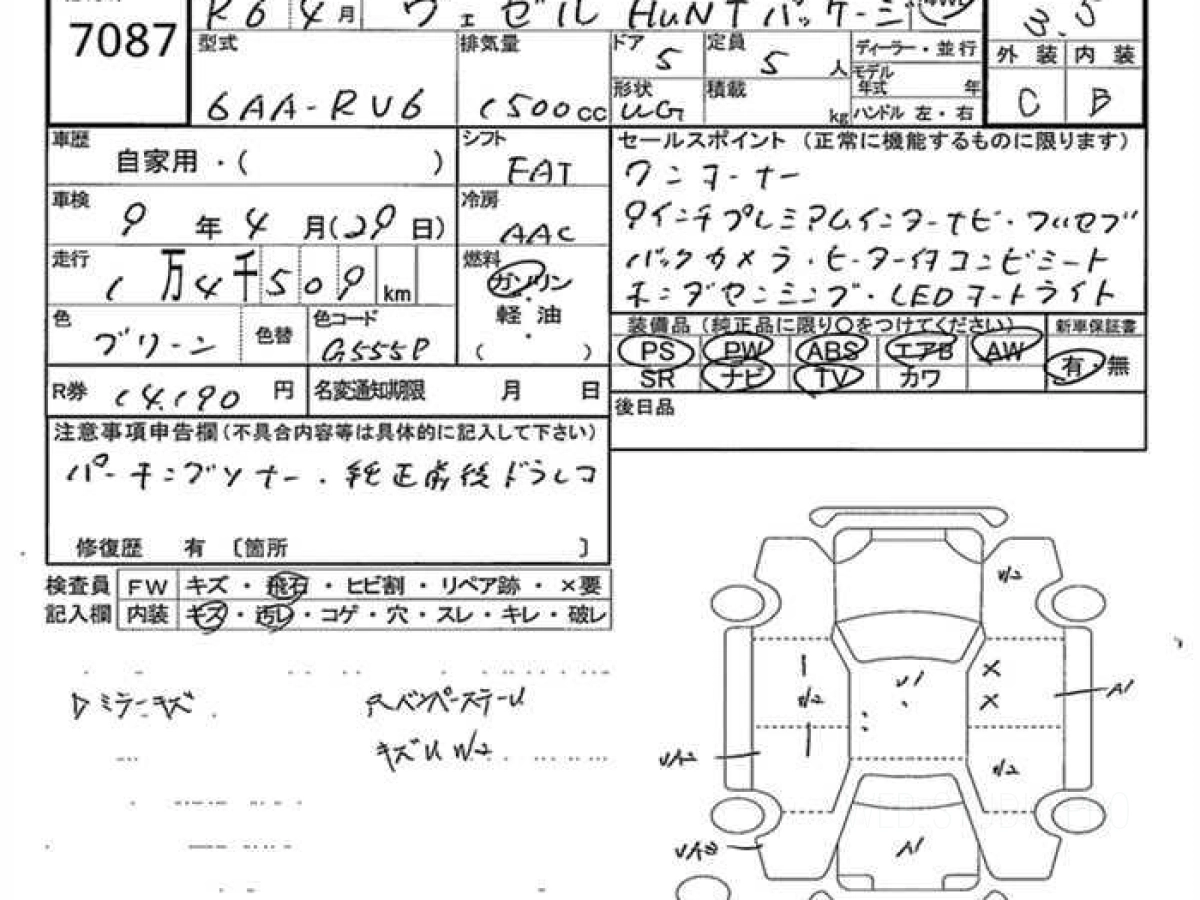 7087
R6 4月 ヴェゼル HuNTパッケージ
3.5
型式 6AA-RV6
排気量 1500cc
ドア 5
定員 5人
ディーラー・並行
モデル年式 年
形状 UG
積載 kg
ハンドル 左・右
外装 内装
C B
車歴 自家用・( )
シフト FAT
車検 9年4月(29日)
冷房 AAC
走行 1万4千509km
燃料 ガソリン・軽油・( )
色 グリーン
色替
色コード G555P
R券 14,190円
名変通知期限 月 日
セールスポイント(正常に機能するものに限ります)
ワンオーナー
9インチプレミアムインターナビ・フルセグ
バックカメラ・ヒーター付コンビシート
ホンダセンシング・LEDオートライト
装備品(純正品に限り○をつけてください)
新車保証書
PS PW ABS エアB AW
有・無
SR ナビ TV カワ
後日品
注意事項申告欄(不具合内容等は具体的に記入して下さい)
パーキングソナー・純正前後ドラレコ
修復歴 有 〔箇所 〕
検査員 FW キズ・飛石・ヒビ割・リペア跡・×要
記入欄 内装 キズ・汚レ・コゲ・穴・スレ・キレ・破レ
Dミラーキズ
RバンパーステーU
キズU W2
W2
U1
W2
A1
W2
A1